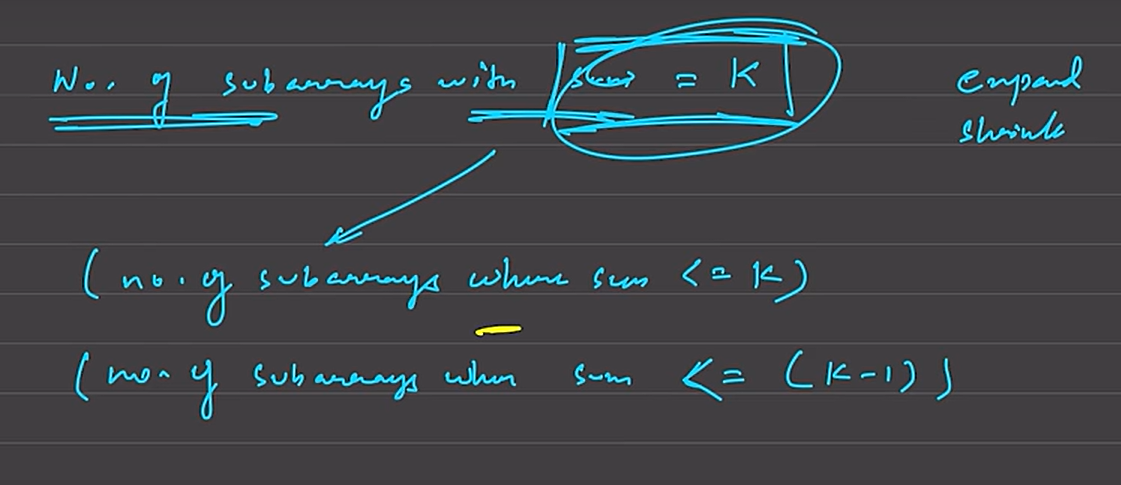 No. of subarrays with sum = K
expand
shrink
(no. of subarrays where sum <= K)
(no. of subarrays where sum <= (K-1))